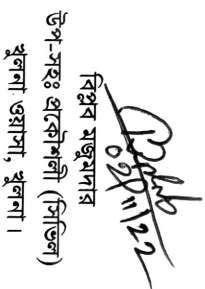 02/11/22
বিপ্লব মজুমদার
উপ-সহঃ প্রকৌশলী (সিভিল)
খুলনা ওয়াসা, খুলনা।